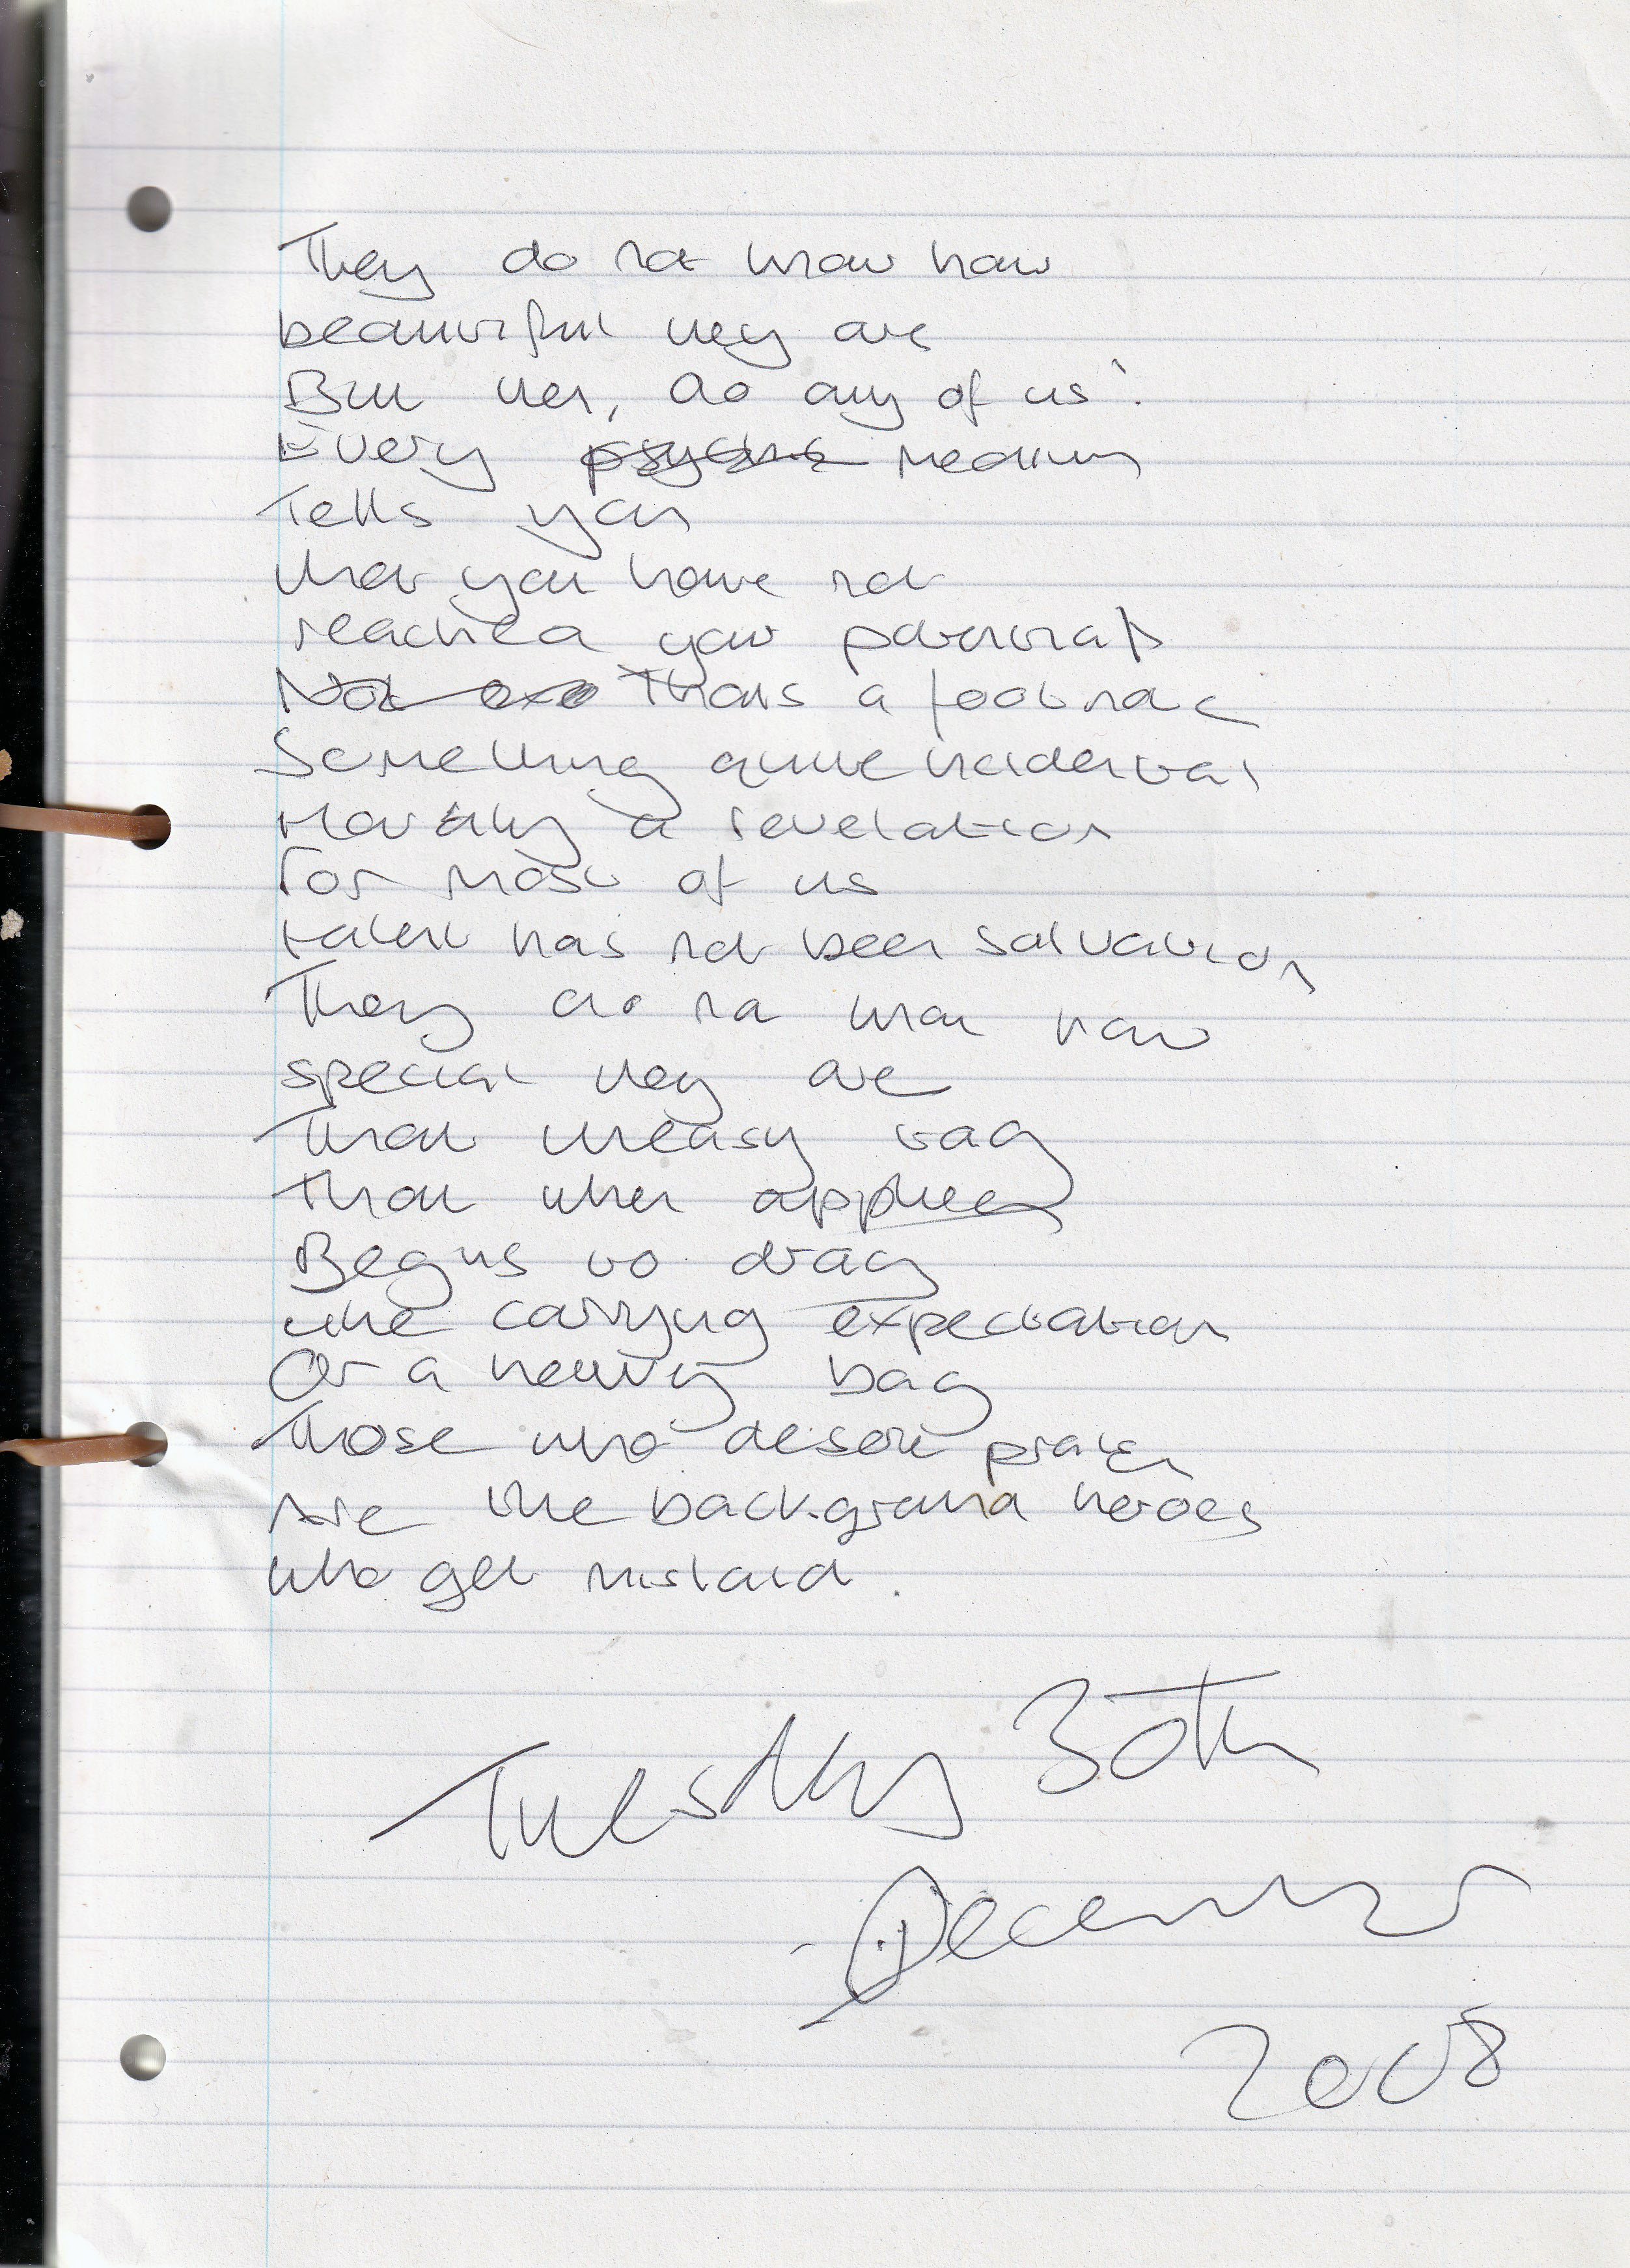 They do not know how
beautiful they are
But then, do any of us?
Every psychic medium
Tells you
that you have not
reached your potential
Not Thats a footnote
Something quite incidental
Hardly a revelation
For most of us
talent has not been salvation
They do not know how
special they are
That uneasy tag
That when applied
Begins to drag
like carrying expectation
Or a heavy bag
Those who deserve praise
Are the background heroes
who get mislaid.
Tuesday 30th
December
2008